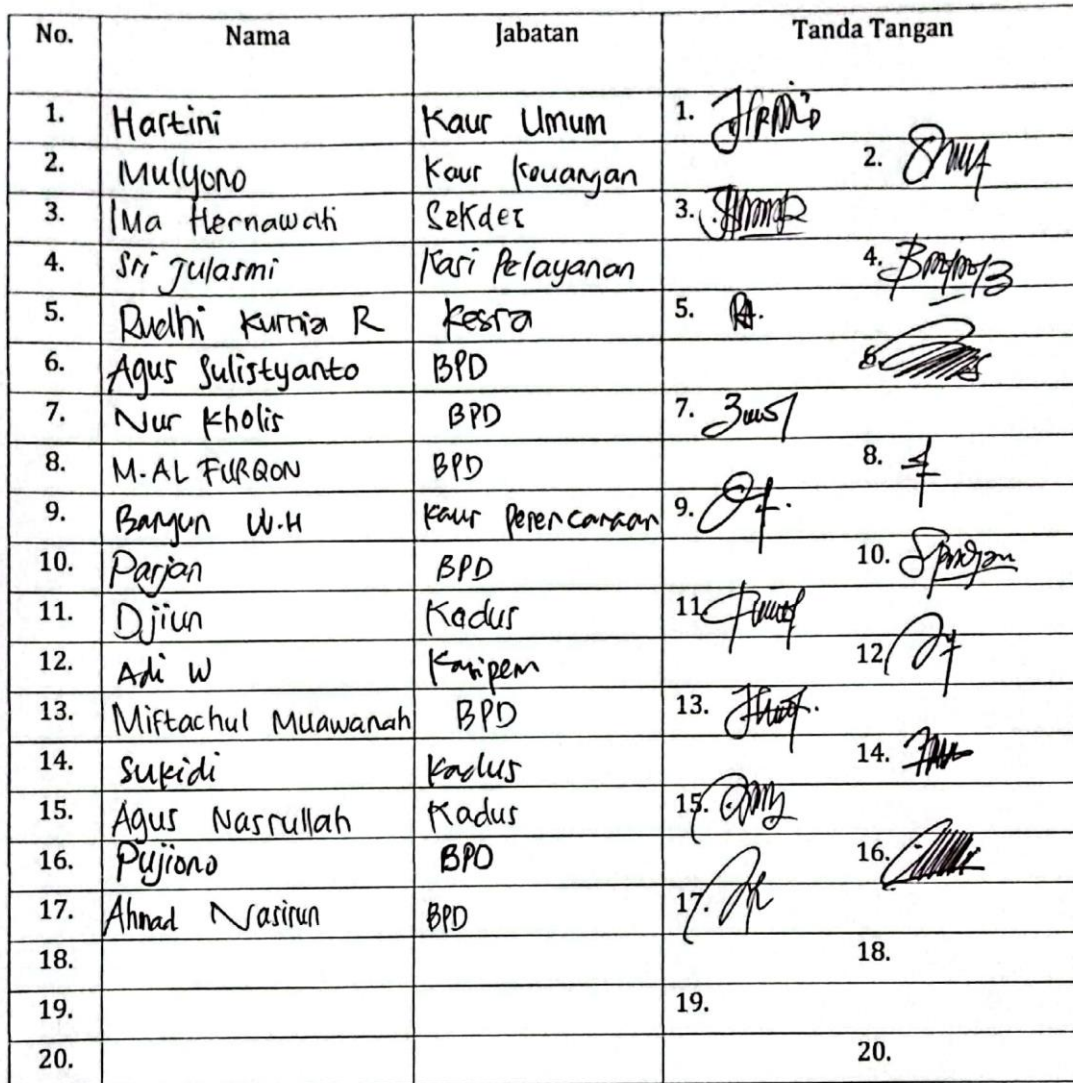 No. Nama Jabatan Tanda Tangan
1. Hartini Kaur Umum 1.
2. Mulyono Kaur Keuangan 2.
3. Ima Hernawati Sekdes 3.
4. Sri Julasmi Kasi Pelayanan 4.
5. Rudhi Kurnia R Kesra 5.
6. Agus Sulistyanto BPD 6.
7. Nur Kholis BPD 7.
8. M. AL FURQON BPD 8.
9. Bangun W.H Kaur Perencanaan 9.
10. Parjan BPD 10.
11. Djiun Kadus 11.
12. Adi W Kasipem 12.
13. Miftachul Muawanah BPD 13.
14. Sukidi Kadus 14.
15. Agus Nasrullah Kadus 15.
16. Pujiono BPD 16.
17. Ahmad Nasirun BPD 17.
18. 18.
19. 19.
20. 20.